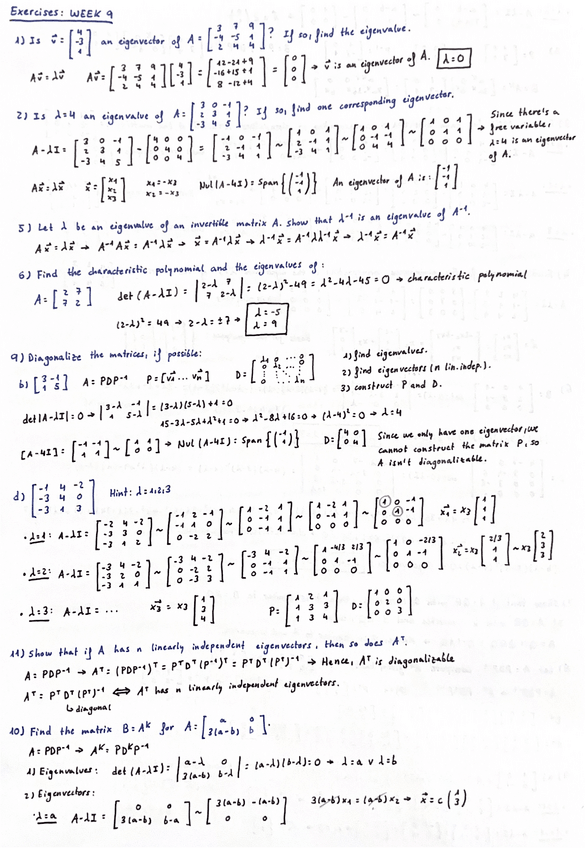 Exercises: WEEK 9
1) Is v⃗ = [4 -3 1] an eigenvector of A = [3 7 9; -4 -5 1; 2 4 4]? If so, find the eigenvalue.
Av⃗ = λv⃗ Av⃗ = [3 7 9; -4 -5 1; 2 4 4] [4 -3 1] = [12-21+9; -16+15+1; 8-12+4] = [0 0 0] → v⃗ is an eigenvector of A. λ=0
2) Is λ=4 an eigenvalue of A = [3 0 -1; 2 3 1; -3 4 5]? If so, find one corresponding eigenvector.
A-λI = [3 0 -1; 2 3 1; -3 4 5] - [4 0 0; 0 4 0; 0 0 4] = [-1 0 -1; 2 -1 1; -3 4 1] ~ [1 0 1; 2 -1 1; -3 4 1] ~ [1 0 1; 0 -1 -1; 0 4 4] ~ [1 0 1; 0 1 1; 0 0 0] → Since there's a free variable, λ=4 is an eigenvector of A.
Ax⃗ = λx⃗ x⃗ = [x1 x2 x3] x1 = -x3 x2 = -x3 Nul(A-4I) = Span{(-1 -1 1)} An eigenvector of A is: [-1 -1 1]
5) Let λ be an eigenvalue of an invertible matrix A. show that λ⁻¹ is an eigenvalue of A⁻¹.
Ax⃗ = λx⃗ → A⁻¹Ax⃗ = A⁻¹λx⃗ → x⃗ = A⁻¹λx⃗ → λ⁻¹x⃗ = A⁻¹λλ⁻¹x⃗ → λ⁻¹x⃗ = A⁻¹x⃗
6) Find the characteristic polynomial and the eigenvalues of:
A = [2 7; 7 2] det(A-λI) = |2-λ 7; 7 2-λ| = (2-λ)²-49 = λ²-4λ-45 = 0 → characteristic polynomial
(2-λ)² = 49 → 2-λ = ±7 → λ=-5 λ=9
9) Diagonalize the matrices, if possible:
b) [3 -1; 1 5] A = PDP⁻¹ P = [v1⃗ ... vn⃗] D = [λ1 0 ... 0; 0 ... λn]
1) find eigenvalues.
2) find eigenvectors (n lin. indep.).
3) construct P and D.
det|A-λI| = 0 → |3-λ -1; 1 5-λ| = (3-λ)(5-λ)+1 = 0
15-3λ-5λ+λ²+1 = 0 → λ²-8λ+16 = 0 → (λ-4)² = 0 → λ=4
[A-4I] = [-1 -1; 1 1] ~ [1 1; 0 0] → Nul(A-4I) = Span{(-1 1)} D = [4 0; 0 4] Since we only have one eigenvector, we cannot construct the matrix P, so A isn't diagonalizable.
d) [-1 4 -2; -3 4 0; -3 1 3] Hint: λ=1,2,3
• λ=1: A-λI = [-2 4 -2; -3 3 0; -3 1 2] ~ [-1 2 -1; -1 1 0; 0 -2 2] ~ [1 -2 1; 0 -1 1; 0 -1 1] ~ [1 -2 1; 0 -1 1; 0 0 0] ~ [1 0 -1; 0 1 -1; 0 0 0] x1⃗ = x3 [1 1 1]
• λ=2: A-λI = [-3 4 -2; -3 2 0; -3 1 1] ~ [-3 4 -2; 0 -2 2; 0 -3 3] ~ [-3 4 -2; 0 -1 1; 0 -1 1] ~ [1 -4/3 2/3; 0 1 -1; 0 0 0] ~ [1 0 -2/3; 0 1 -1; 0 0 0] x2⃗ = x3 [2/3 1 1] ~ x3 [2 3 3]
• λ=3: A-λI = ... x3⃗ = x3 [1 3 4] P = [1 2 1; 1 3 3; 1 3 4] D = [1 0 0; 0 2 0; 0 0 3]
11) Show that if A has n linearly independent eigenvectors, then so does Aᵀ.
A = PDP⁻¹ → Aᵀ = (PDP⁻¹)ᵀ = PᵀDᵀ(P⁻¹)ᵀ = PᵀDᵀ(Pᵀ)⁻¹ → Hence, Aᵀ is diagonalizable
Aᵀ = PᵀDᵀ(Pᵀ)⁻¹ ⟺ Aᵀ has n linearly independent eigenvectors.
↳ diagonal
10) Find the matrix B = Aᵏ for A = [a 0; 3(a-b) b].
A = PDP⁻¹ → Aᵏ = PDᵏP⁻¹
1) Eigenvalues: det(A-λI) = |a-λ 0; 3(a-b) b-λ| = (a-λ)(b-λ) = 0 → λ=a ∨ λ=b
2) Eigenvectors:
• λ=a A-λI = [0 0; 3(a-b) b-a] ~ [3(a-b) -(a-b); 0 0] 3(a-b)x1 = (a-b)x2 → x⃗ = c(1 3)